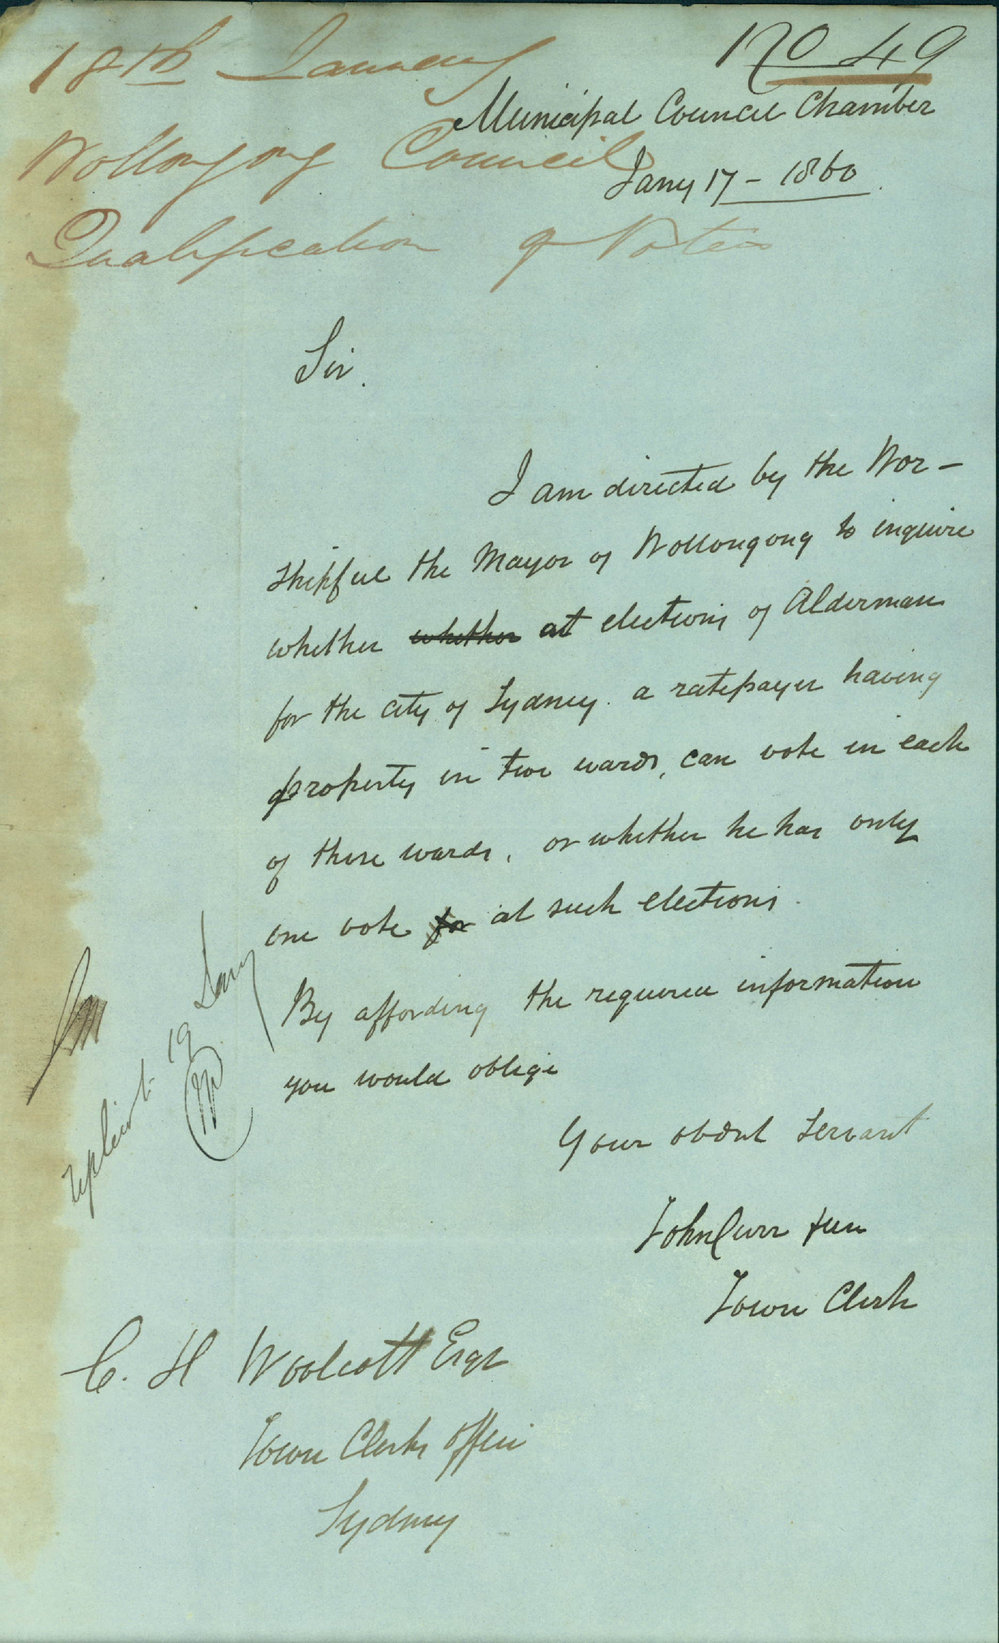 18th January
No 49
Municipal Council Chamber
Jany 17 - 1860
Wollongong Council
Qualification of Voters
Sir.
I am directed by the Wor-
shipful the Mayor of Wollongong to inquire
whether whether at elections of Alderman
for the city of Sydney. a ratepayer having
property in two wards, can vote in each
of these wards, or whether he has only
one vote for at such elections.
By affording the required information
you would oblige
Your obdnt Servant
John Curr Jun
Town Clerk
replied 19 Jany
C. H Woolcott Esqr
Town Clerks Office
Sydney